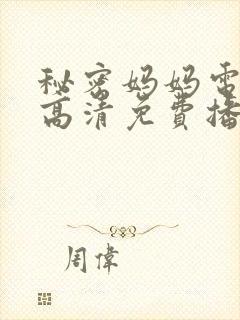 秘密妈妈电
高清免费播
周偉